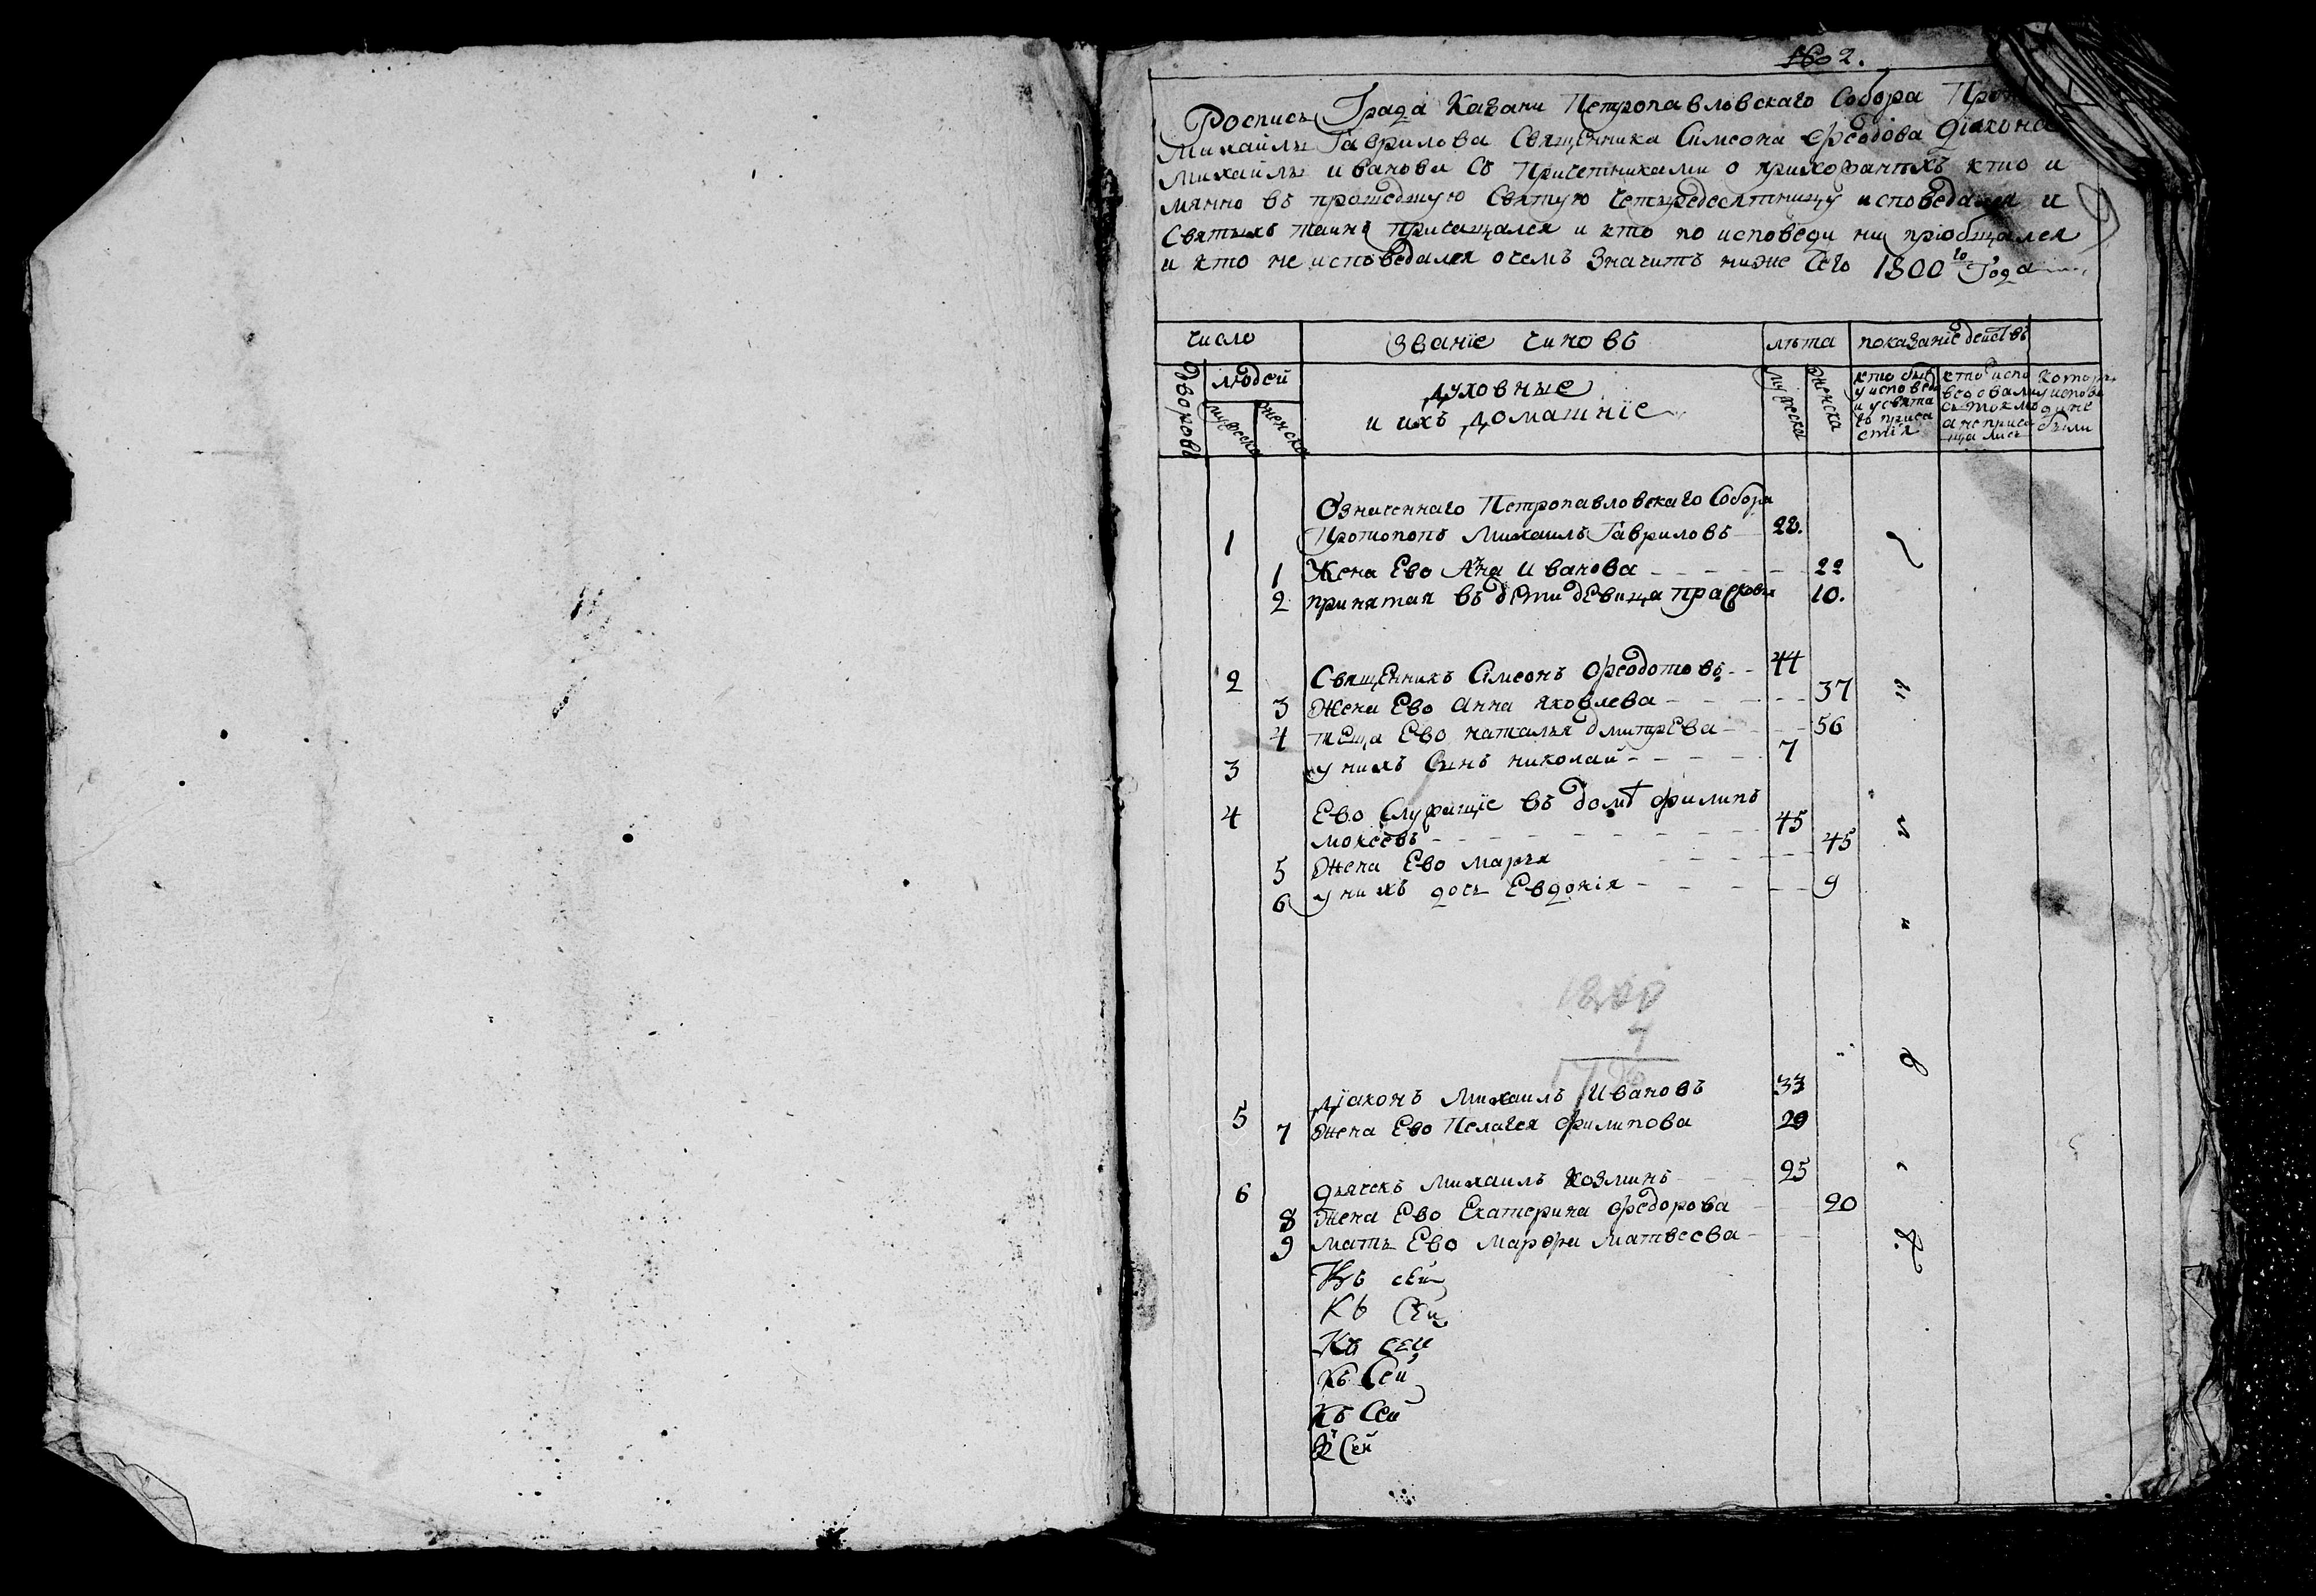 1602.
Роспись Града Казани Петропавловскаго Собора
Михаилы Гаврилова Священника Симеона Феодова Діякона
Михаилы иванова Съ Причетниками о прихожанѣхъ кто и
мянно въ прошедшую Святую Четыредесятницу исповедался и
Святыхъ таинъ причащался и кто по исповеди ни приобщался
и кто не исповедался очемъ Значитъ ниже Сего 1800го Года
число званїе чиновъ лѣта показанїе действъ
Дворовъ людей мужеска женска духовные мужеска женска кто был кто испо котор
у исповед ведовали у испове
и у свята съ токмо ди не
го прича а не прича были
стїя щались
и ихъ домашнїе
Означеннаго Петропавловскаго Собора
1 Протопопъ Михаилъ Гавриловъ 22.
1 Жена Ево Анна Иванова 22
2 принятая въ дети девица Прасковья 10.
2 Священникъ Симеонъ Феодотовъ 44
3 Жена Ево Анна яковлева 37
4 теща Ево наталья дмитрева 56
3 у нихъ Сынъ николай 7
4 Ево Служащїе въ домѣ филипъ
мокеевъ 45
5 Жена Ево Марья 45
6 у нихъ дочь Евдокия 9
1800
7
5 Дїаконъ Михаилъ Ивановъ 33
7 Жена Ево Пелагея Филипова 29
6 дьячекъ Михаилъ Козминъ 25
8 Жена Ево Екатерина Федорова 20
9 мать Ево Марфа Матвеева
Къ сей
Къ Сей
Къ сей
Къ Сей
Къ Сей
К Сей